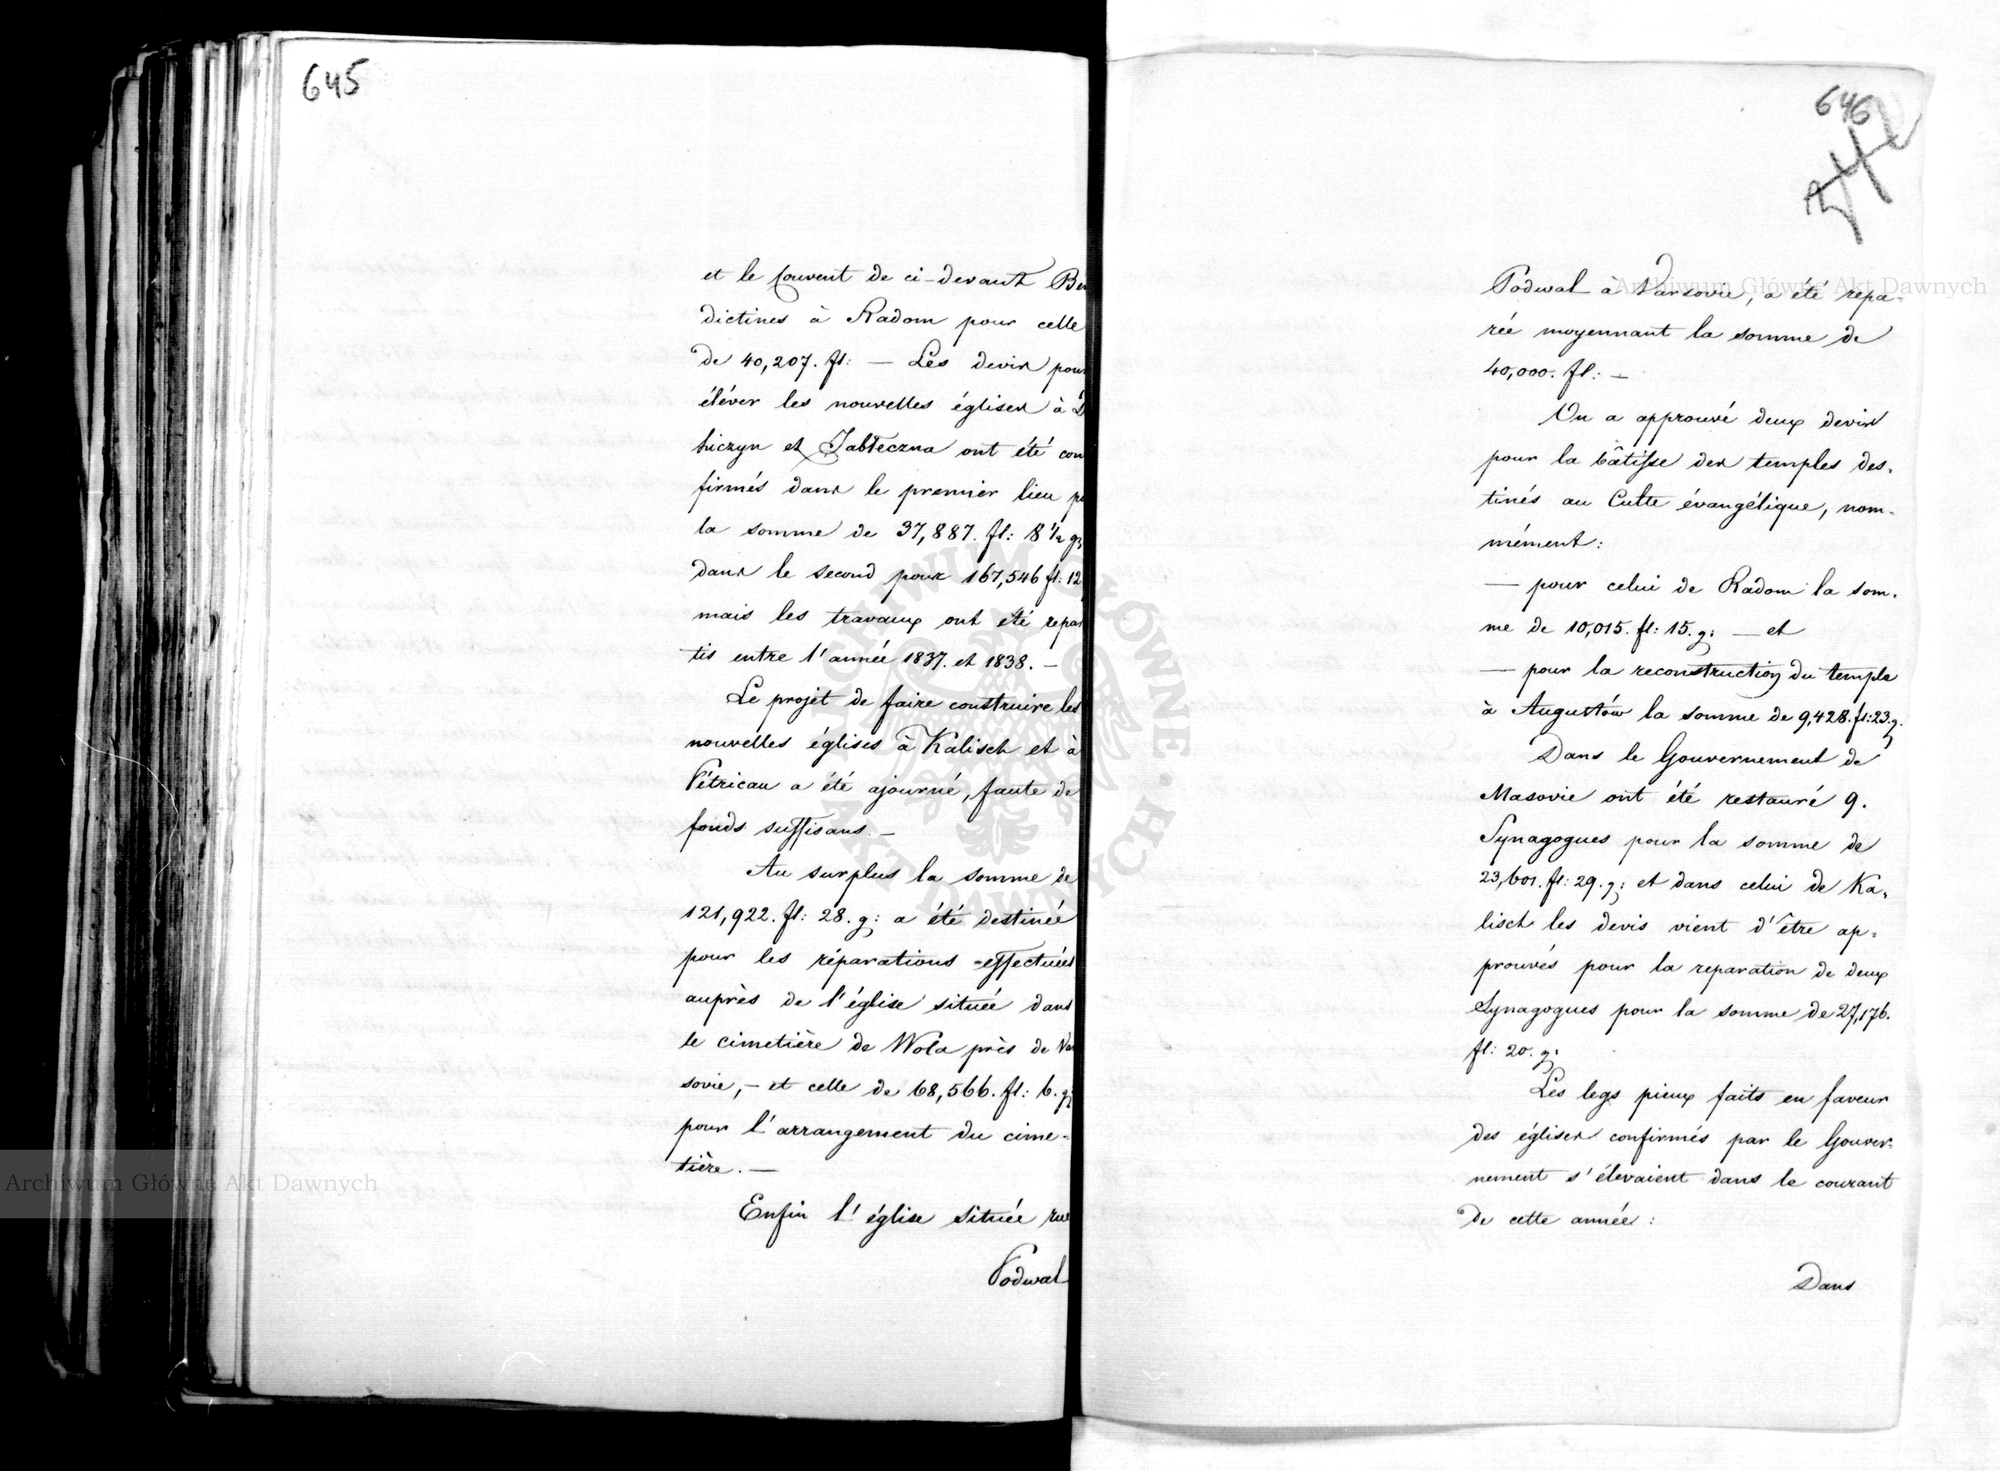 645
et le Couvent de ci-devant Bé
dictines à Radom pour celle
de 40,207. fl: — Les devis pour
éléver les nouvelles églises à
hiczyn et Jabłeczna ont été con
firmés dans le premier lieu po
la somme de 37,887. fl: 8 1/2 g;
dans le second pour 167,546 fl: 12
mais les travaux ont été repar
tis entre l'année 1837. et 1838. —
Le projet de faire construire les
nouvelles églises à Kalisch et à
Pétricau a été ajourné, faute de
fonds suffisans. —
Au surplus la somme de
121,922. fl: 28. g; a été destinée
pour les réparations effectuées
auprès de l'église située dans
le cimetière de Wola près de Var
sovie, — et celle de 68,566. fl: 6. g;
pour l'arrangement du cime-
tière. —
Enfin l'église située rue
Podwal
646
Podwal à Varsovie, a été répa-
rée moyennant la somme de
40,000. fl: —
On a approuvé deux devis
pour la bâtisse des temples des-
tinés au Culte évangélique, nom-
mément:
— pour celui de Radom la som-
me de 10,015. fl: 15. g; — et
— pour la reconstruction du temple
à Augustów la somme de 9,428. fl: 23. g.
Dans le Gouvernement de
Masovie ont été restauré 9.
Synagogues pour la somme de
23,601. fl: 29. g; et dans celui de Ka-
lisch les devis vient d'être ap-
prouvés pour la reparation de deux
Synagogues pour la somme de 27,176.
fl: 20. g;
Les legs pieux faits en faveur
des églises confirmés par le Gouver-
nement s'élevaient dans le courant
de cette année:
Dans
Archiwum Główne Akt Dawnych
Archiwum Główne Akt Dawnych
ARCHIWUM GŁÓWNE AKT DAWNYCH